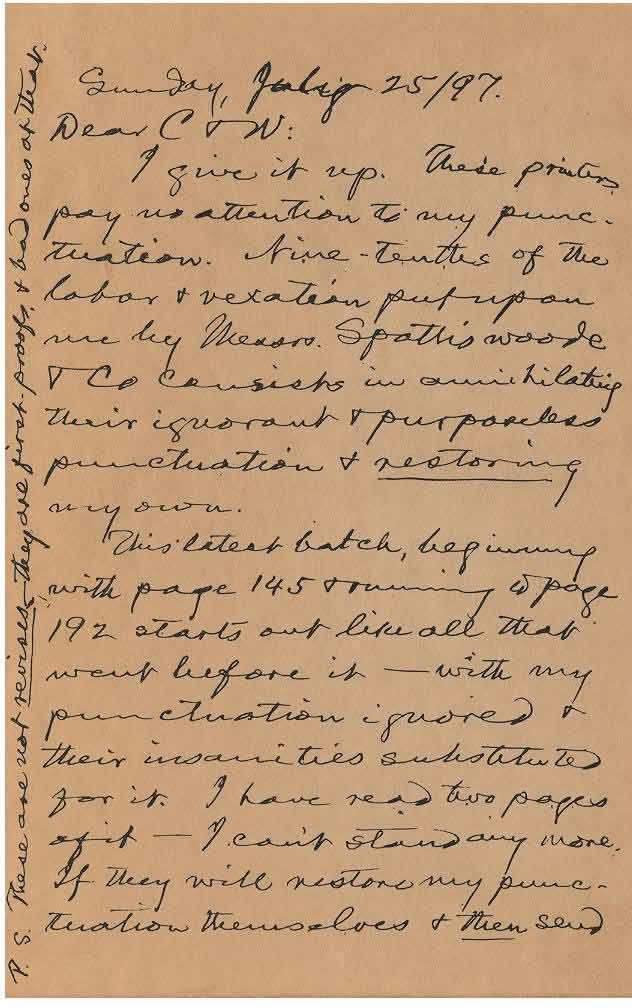 Sunday, July 25/97.
Dear C & W:
I give it up. These printers
pay no attention to my punc-
tuation. Nine-tenths of the
labor & vexation put upon
me by Messrs. Spottiswoode
& Co consists in annihilating
their ignorant & purposeless
punctuation & restoring
my own.
This latest batch, beginning
with page 145 & running to page
192 starts out like all that
went before it — with my
punctuation ignored &
their insanities substituted
for it. I have read two pages
of it — I can't stand any more.
If they will restore my punc-
tuation themselves & then send
P. S. These are not revises—they are first-proofs, & bad ones at that.